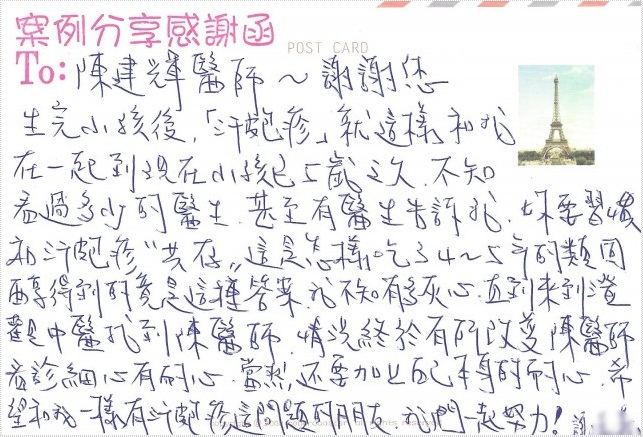 案例分享感謝函
POST CARD
To: 陳建輝醫師~謝謝您
生完小孩後,「汗皰疹」就這樣和我
在一起到現在小孩已5歲之久.不知
看過多少的醫生.甚至有醫生告訴我.妳要習慣
和汗皰疹"共存"這是怎樣.吃了4~5年的類固
醇得到的竟是這種答案我不知有多灰心.直到來到澄
觀中醫找到陳醫師.情況終於有所改善陳醫師
看診細心有耐心.當然.還要加上配本身的耐心.希
望和我一樣有汗皰疹這問題的朋友.我們一起努力!謝